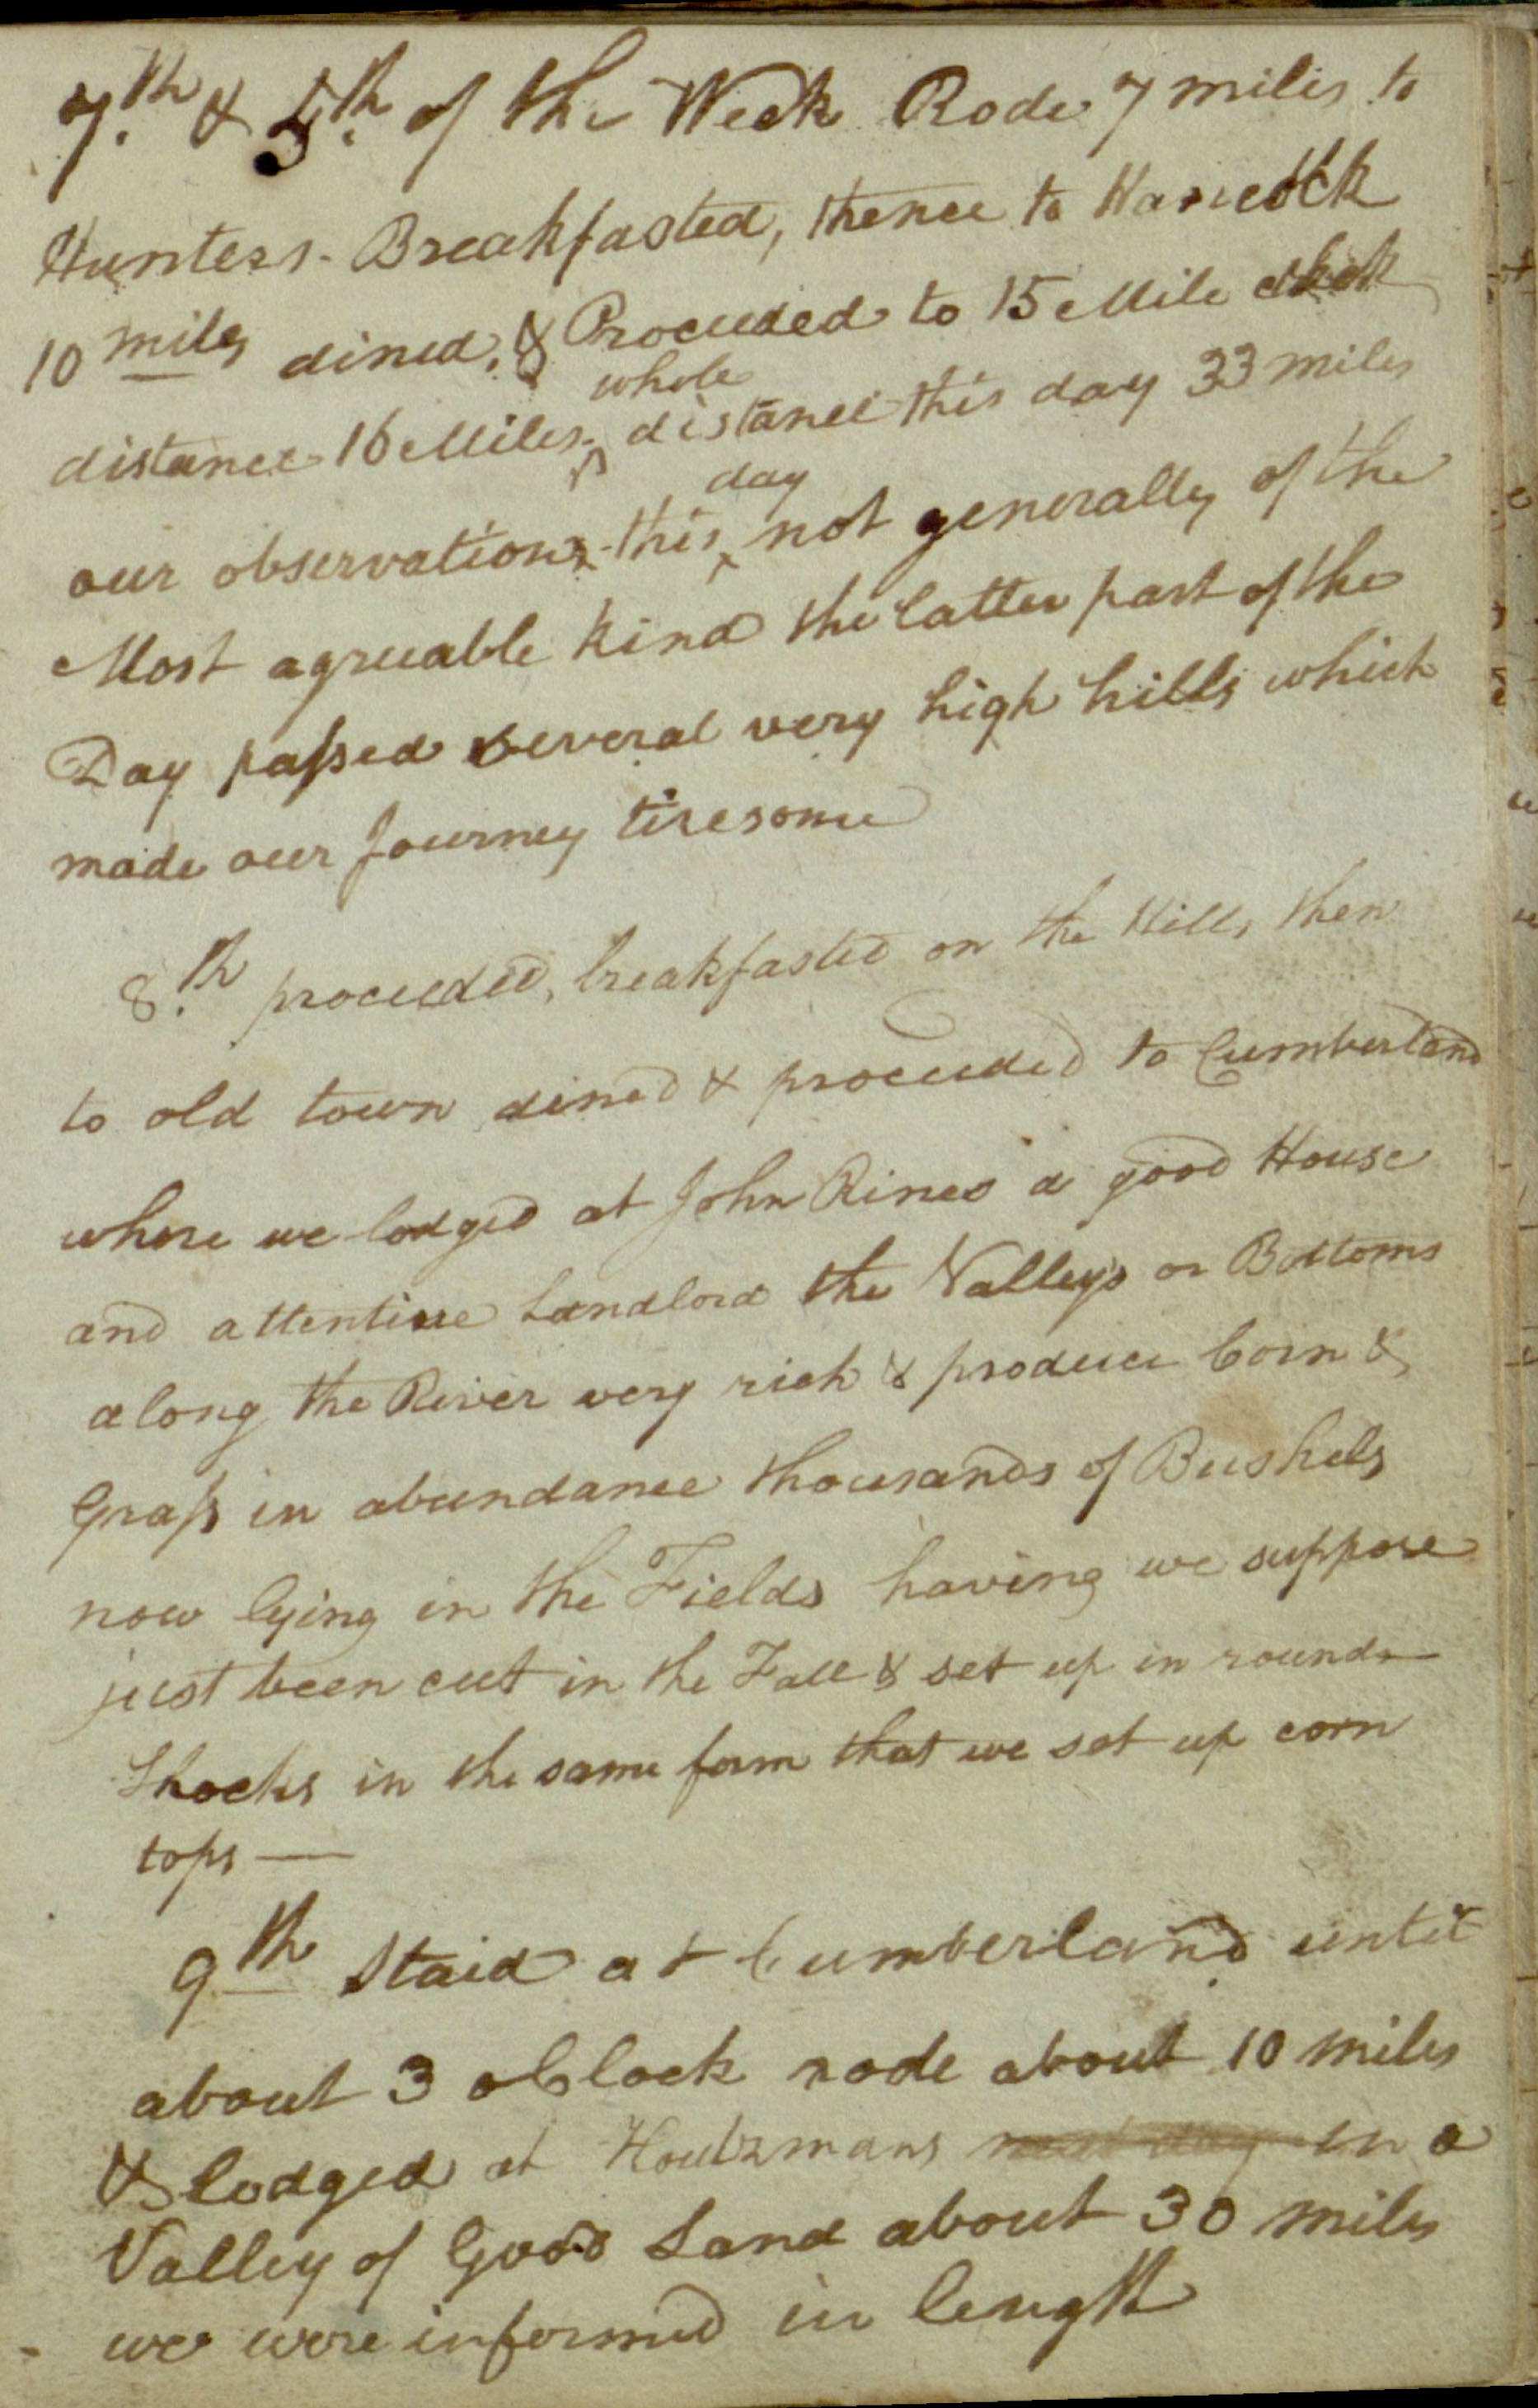 7.th & 5.th of the Week Rode 7 miles to
Hunters. Breakfasted, thence to Hancock
10 miles dined, & Proceeded to 15 Mile
whole
distance 16 Miles. ^ distance this day 33 miles
day
our observations this ^ not generally of the
Most agreeable kind the latter part of the
Day passed several very high hills which
made our Journey tiresome
8.th proceeded, breakfasted on the Hill, then
to old town dined & proceeded to Cumberland
where we lodged at John Rines a good House
and attentive Landlord the Valleys or Bottoms
along the River very rich & produce Corn &
Grass in abundance thousands of Bushels
now lying in the Fields having we suppose
just been cut in the Fall & set up in round
Shocks in the same form that we set up corn
tops —
9th Staid at Cumberland until
about 3 oClock rode about 10 miles
& lodged at Houtzmans in a
Valley of Good Land about 30 miles
we were informed in length